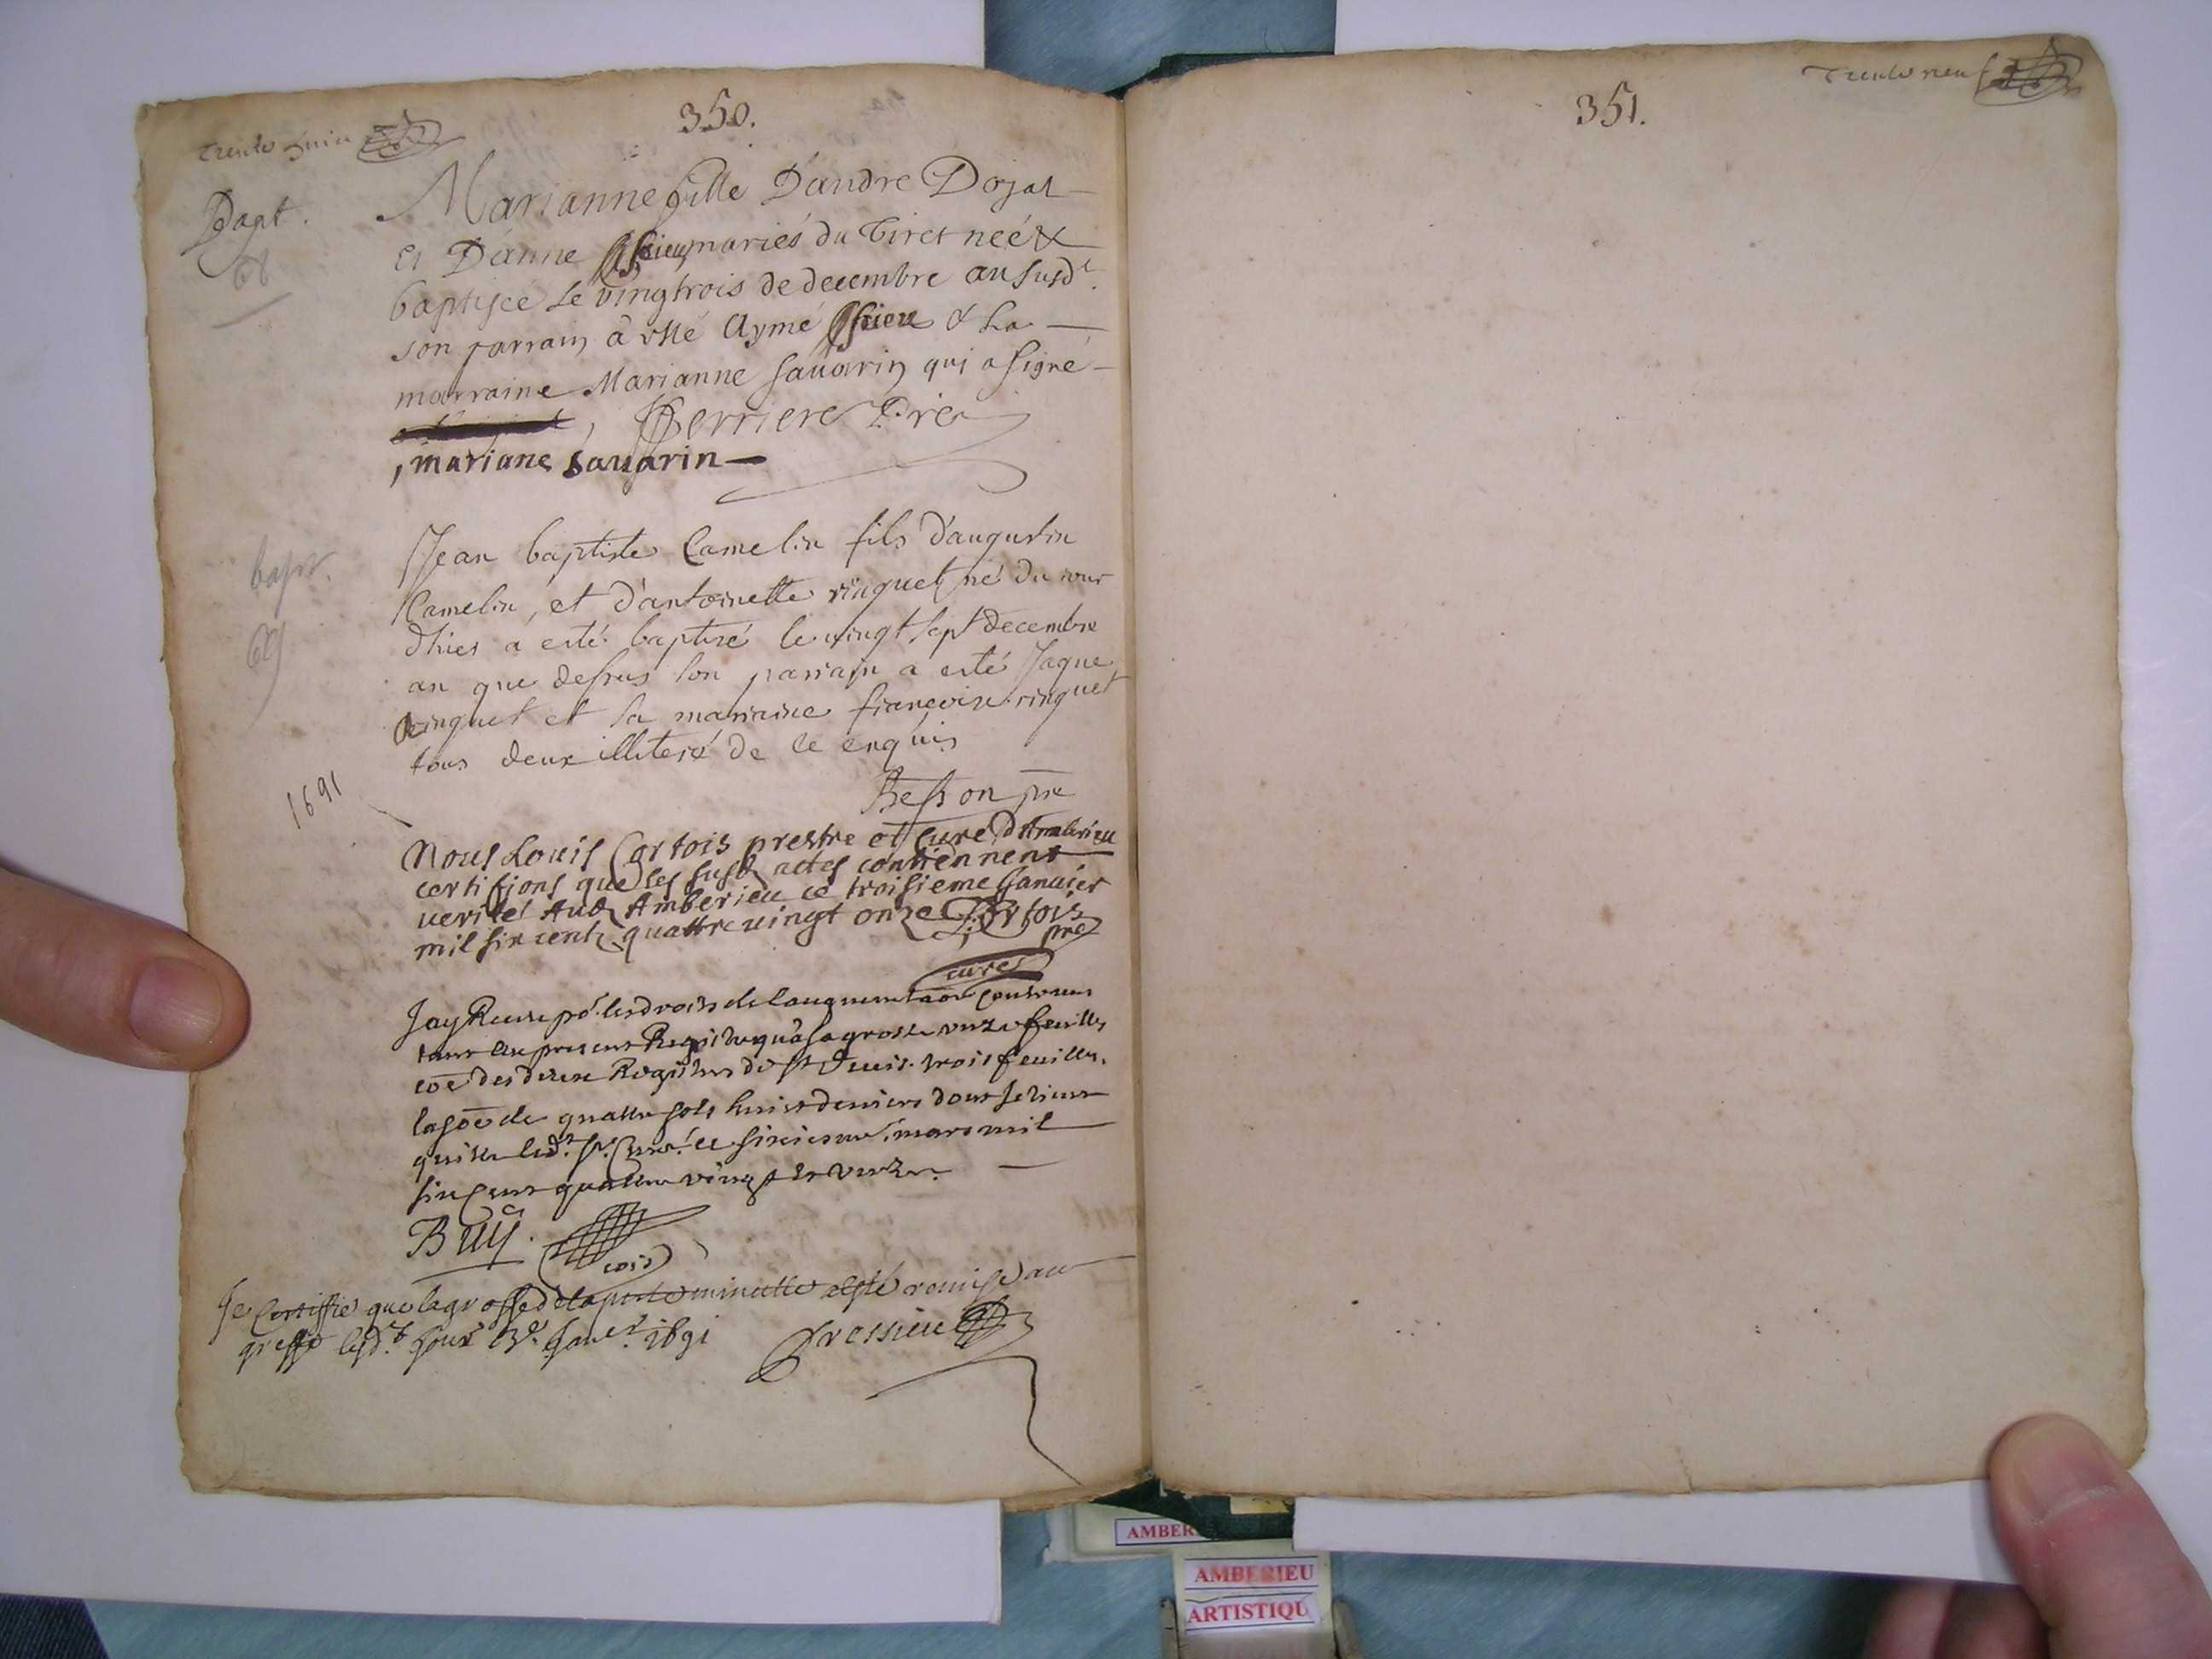 350.
Trente huict
Bapt.
68
Marianne fille D'andre Dojat
et D'anne mariés du Tiret née &
baptisee le vingtrois de decembre an susdt.
son parrain a esté Aymé & sa
marraine Marianne Sauarin qui a signé
Perriere
mariane sauarin
bapt.
69
Jean baptiste Camelin fils d'augustin
Camelin, et d'antoinette ringuet né du iour
d'hier a esté baptisé le vingt sept decembre
an que dessus son parrain a esté Jaque
ringuet et sa marraine françoise ringuet
tous deux illiteré de ce enquis
Besson pre
1691
Nous Louis Cortois prestre et curé d'Amberieu
certifions que les susd actes contiennent
verité Aud Amberieu ce troisieme Januier
mil six cents quattre vingt onze Cortois
pre
curé
Jay Receu les droits de laugmentaon
tant du present Registre qu'a sa grosse onze feuilles
des deux Registres de St Denis trois feuilles
la soe de quattre sols huict deniers dont Je tiens
quitte led. Sr. Curé ce sixiesme mars mil
six cent quattre vingt et unze
Buy.
Je Certiffie que la grosse de la minutte a esté remise au
greffe lesd. Jour 3e. Janer. 1691
Gressieu
351.
Trente neuf
AMBER
AMBERIEU
ARTISTIQU